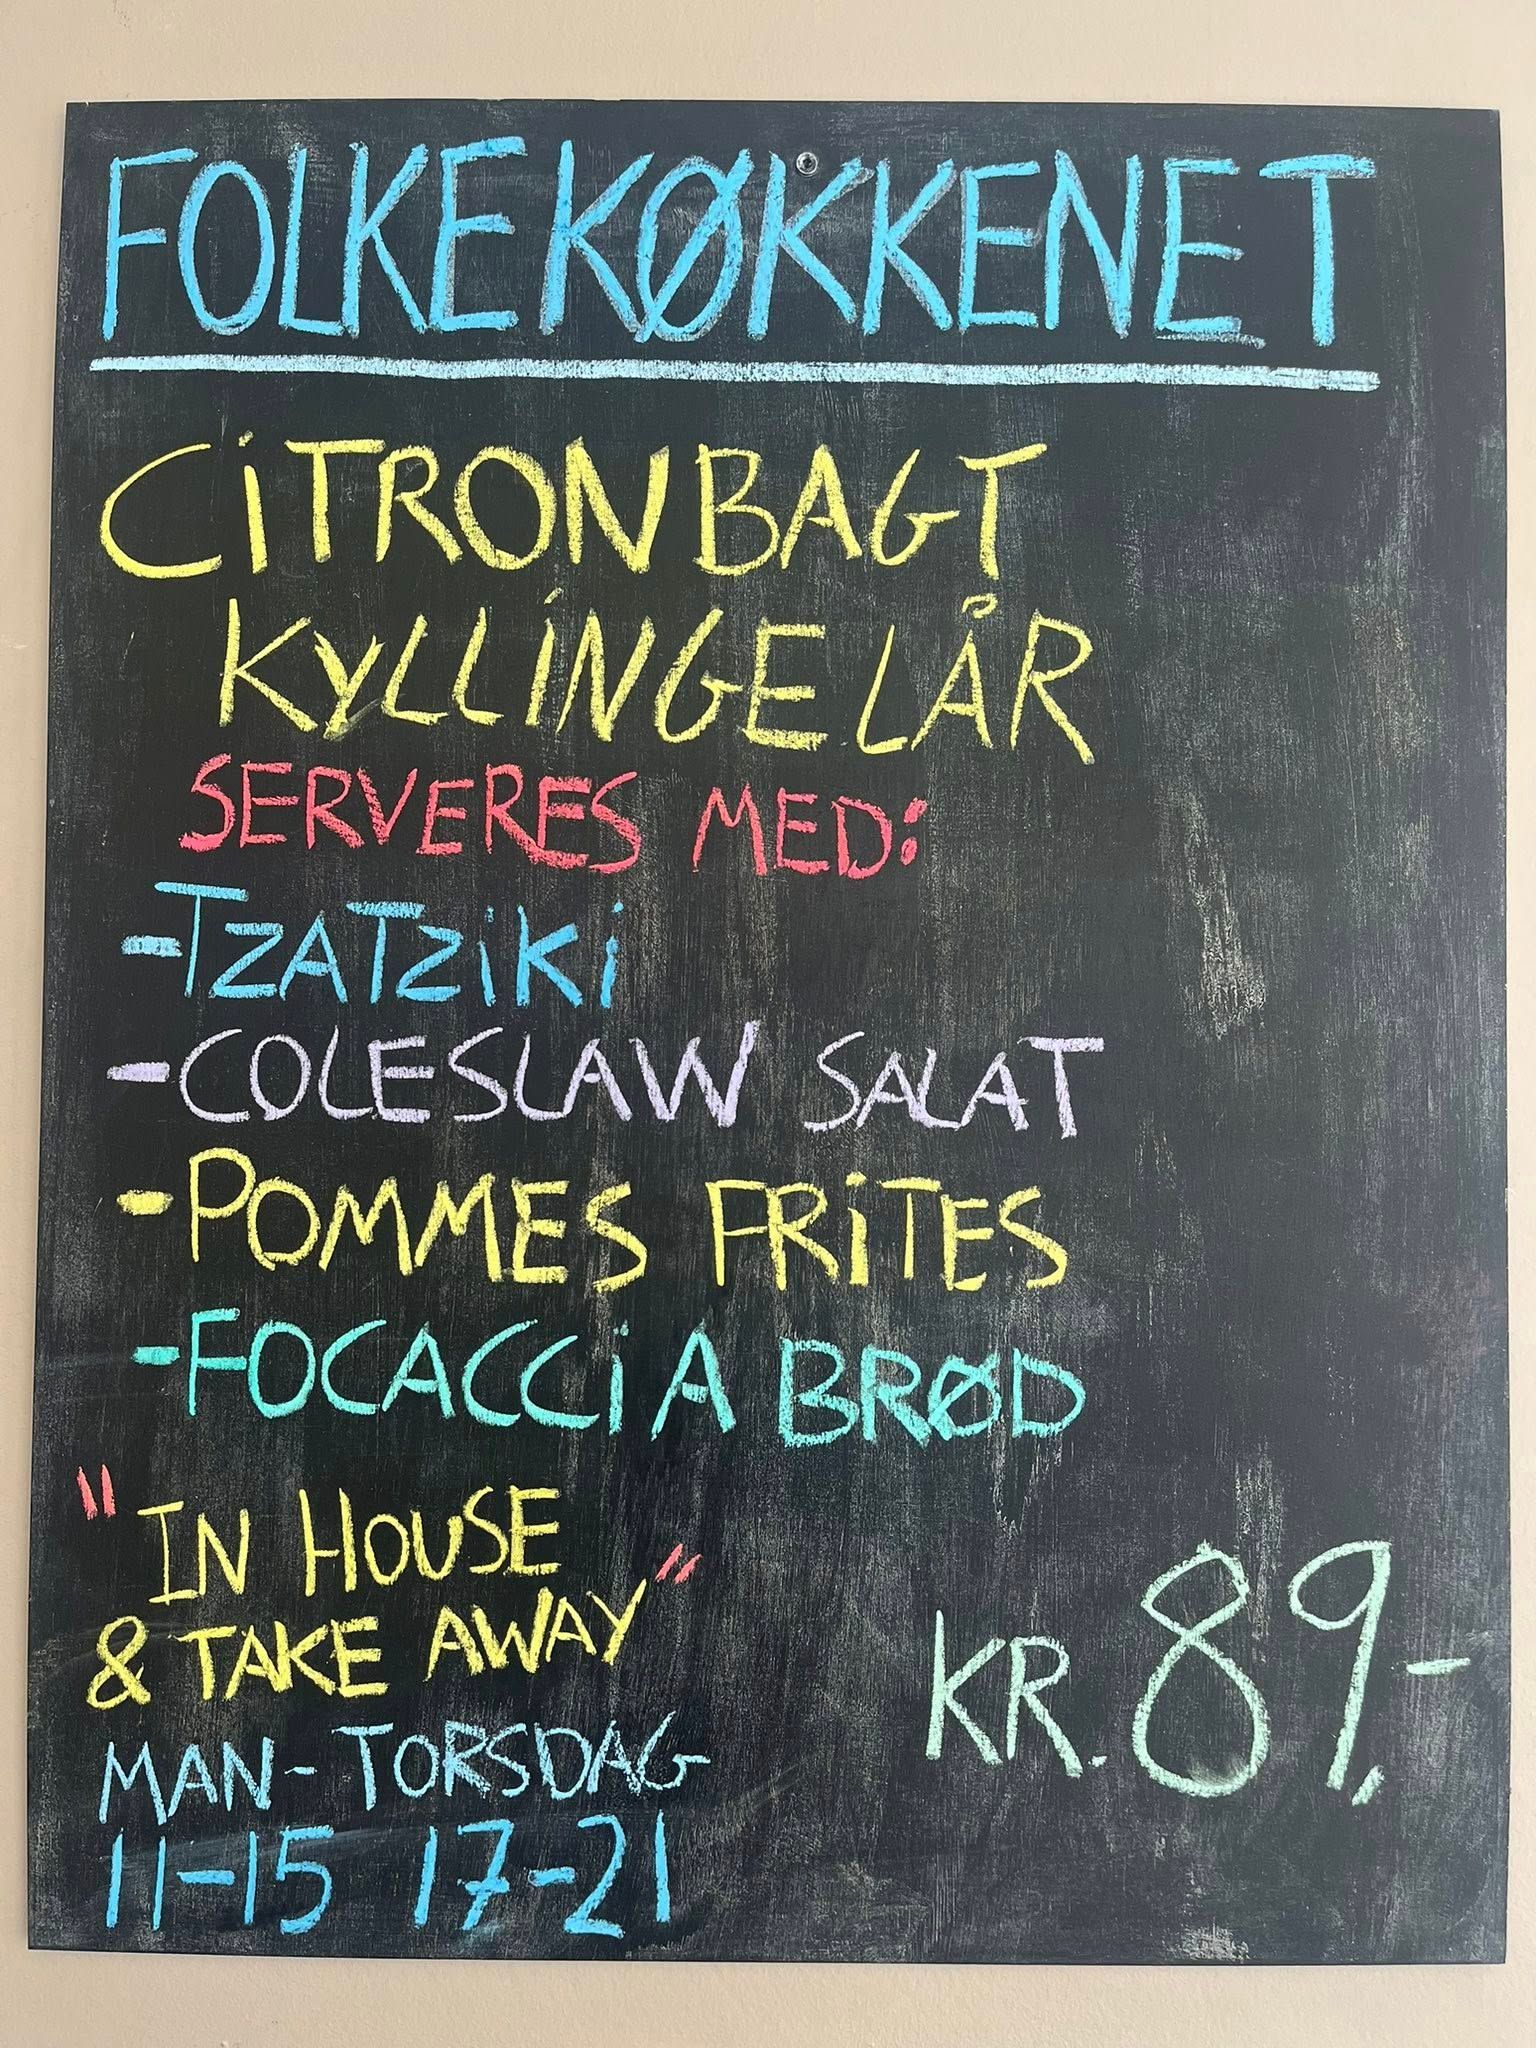 FOLKEKØKKENET
CiTRONBAGT
KYLLiNGELÅR
SERVERES MED:
-TZATZiKi
-COLESLAW SALAT
-POMMES FRiTES
-FOCACCiA BRØD
"IN HOUSE
& TAKE AWAY"
KR. 89,-
MAN-TORSDAG
11-15 17-21